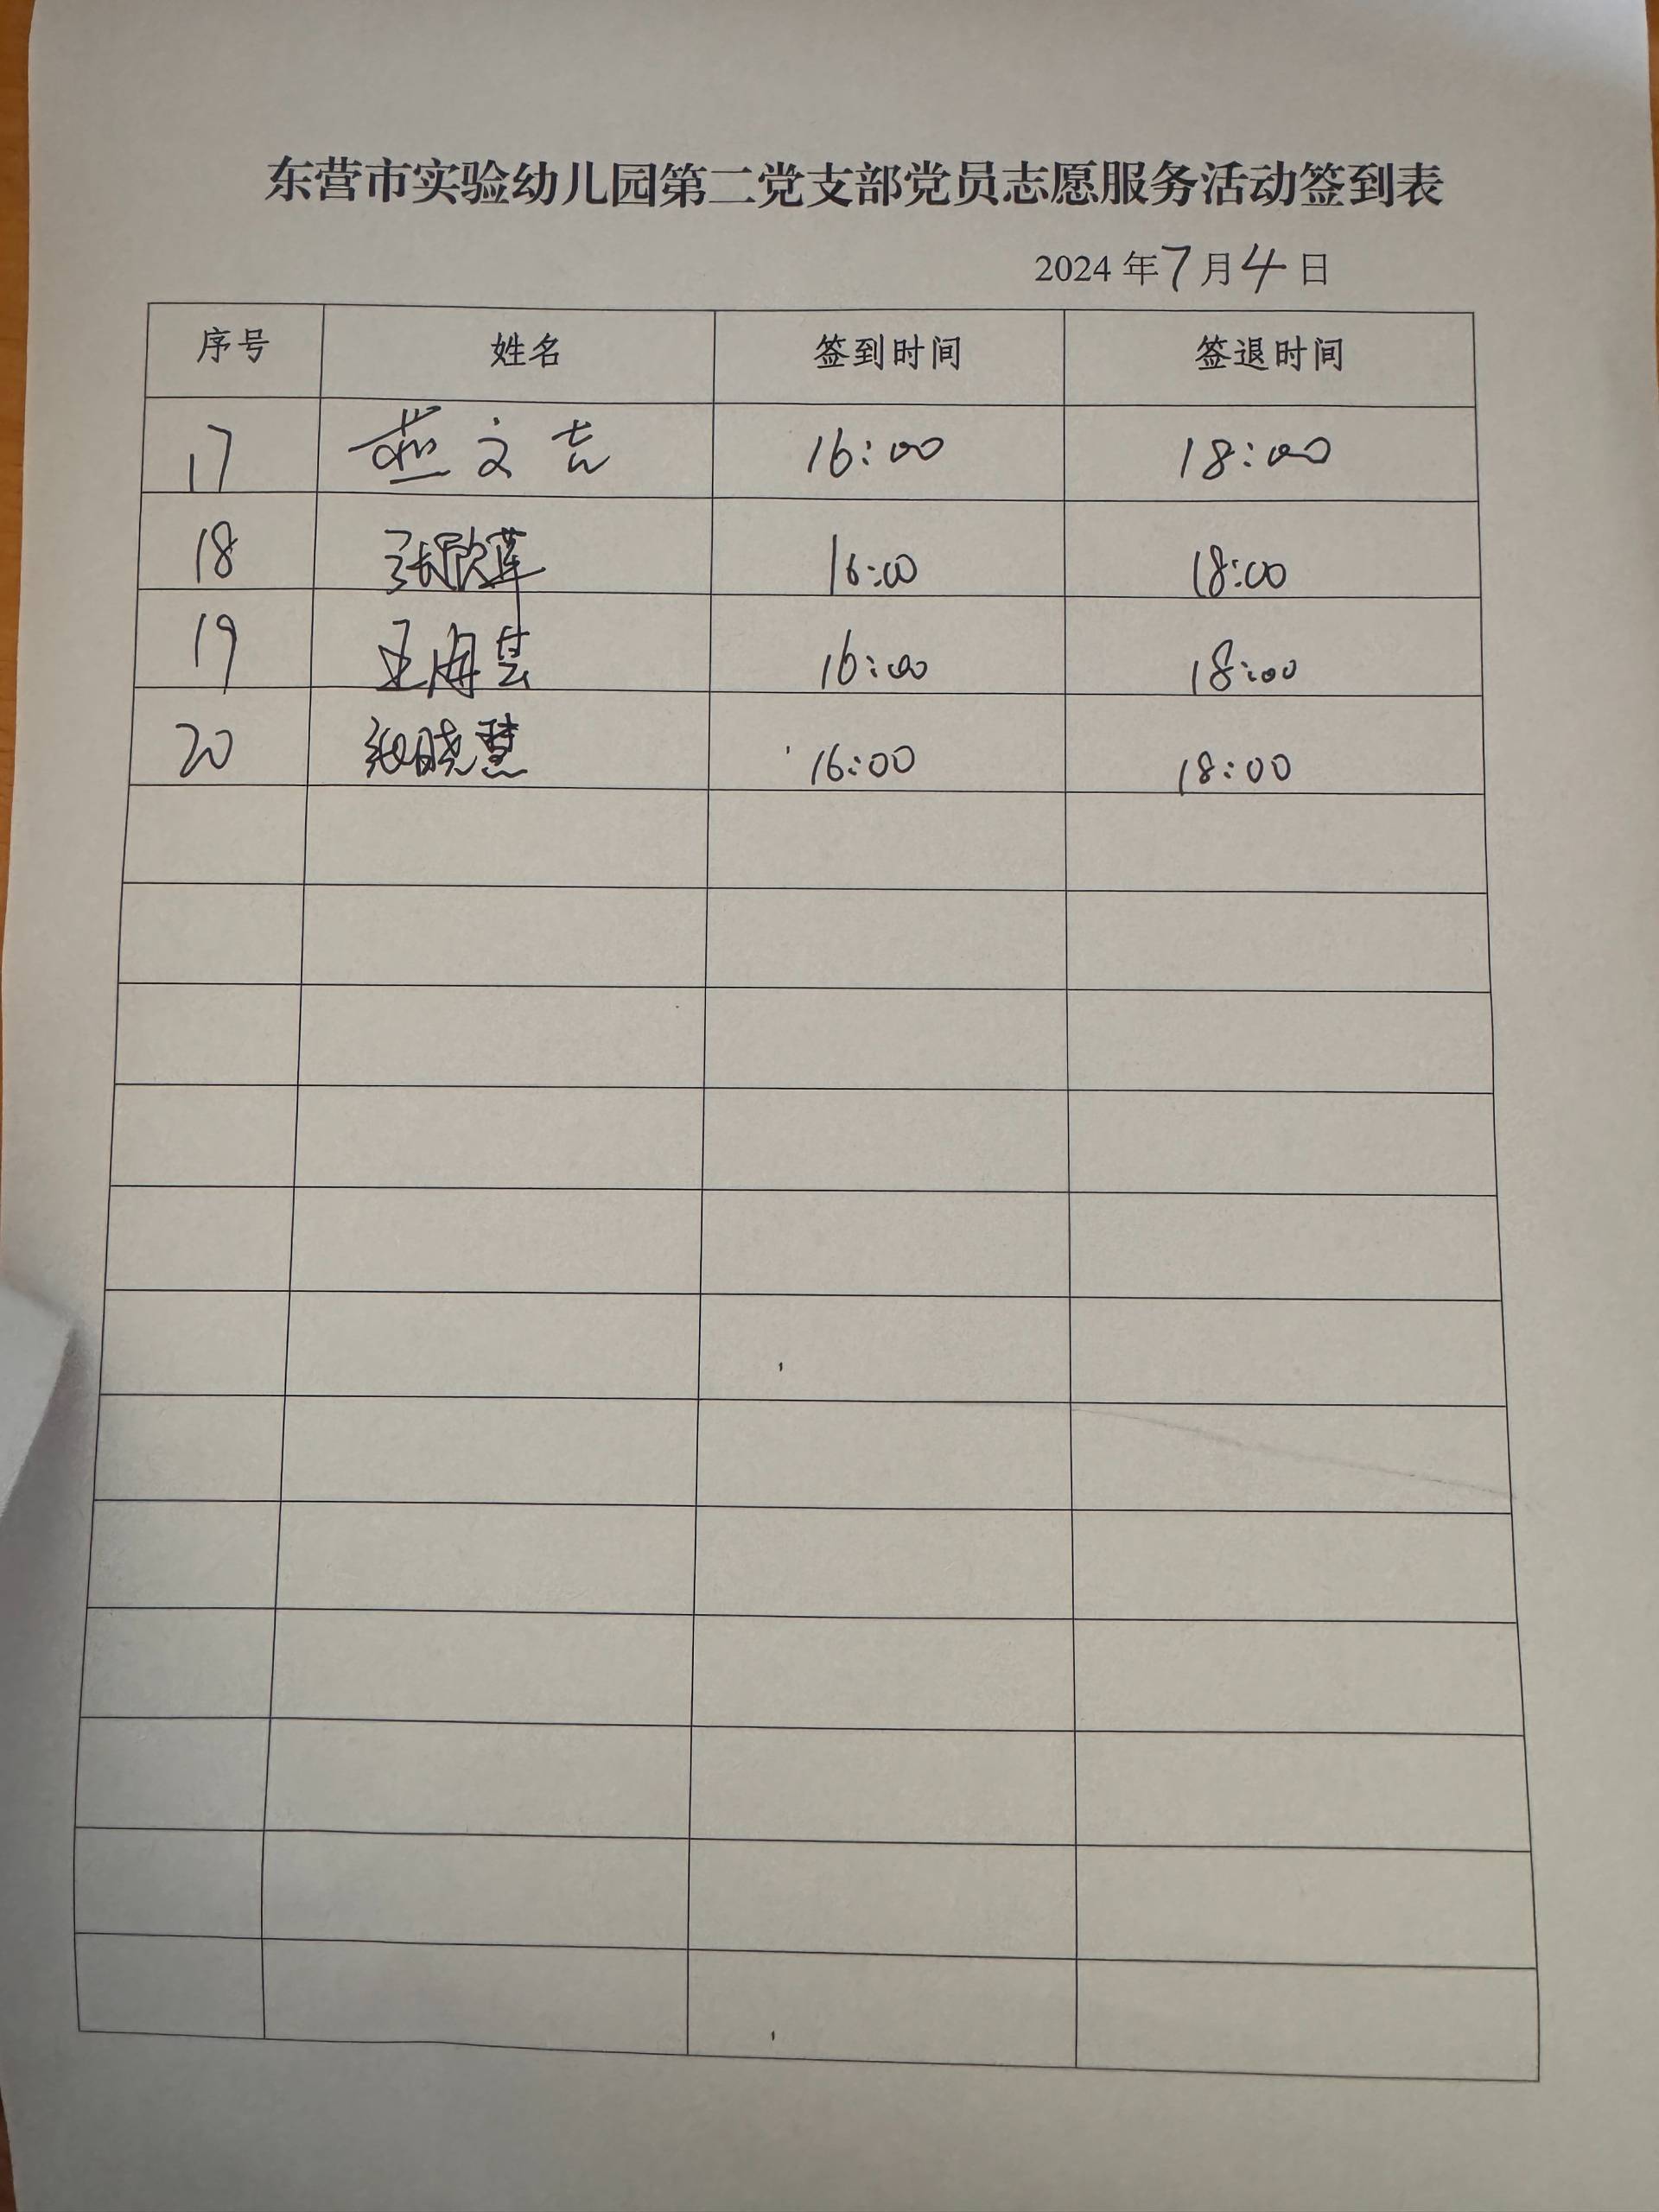 东营市实验幼儿园第二党支部党员志愿服务活动签到表
2024 年 7 月 4 日
序号 姓名 签到时间 签退时间
17 燕文吉 16:00 18:00
18 张欣莲 16:00 18:00
19 王海芸 16:00 18:00
20 张晓慧 16:00 18:00